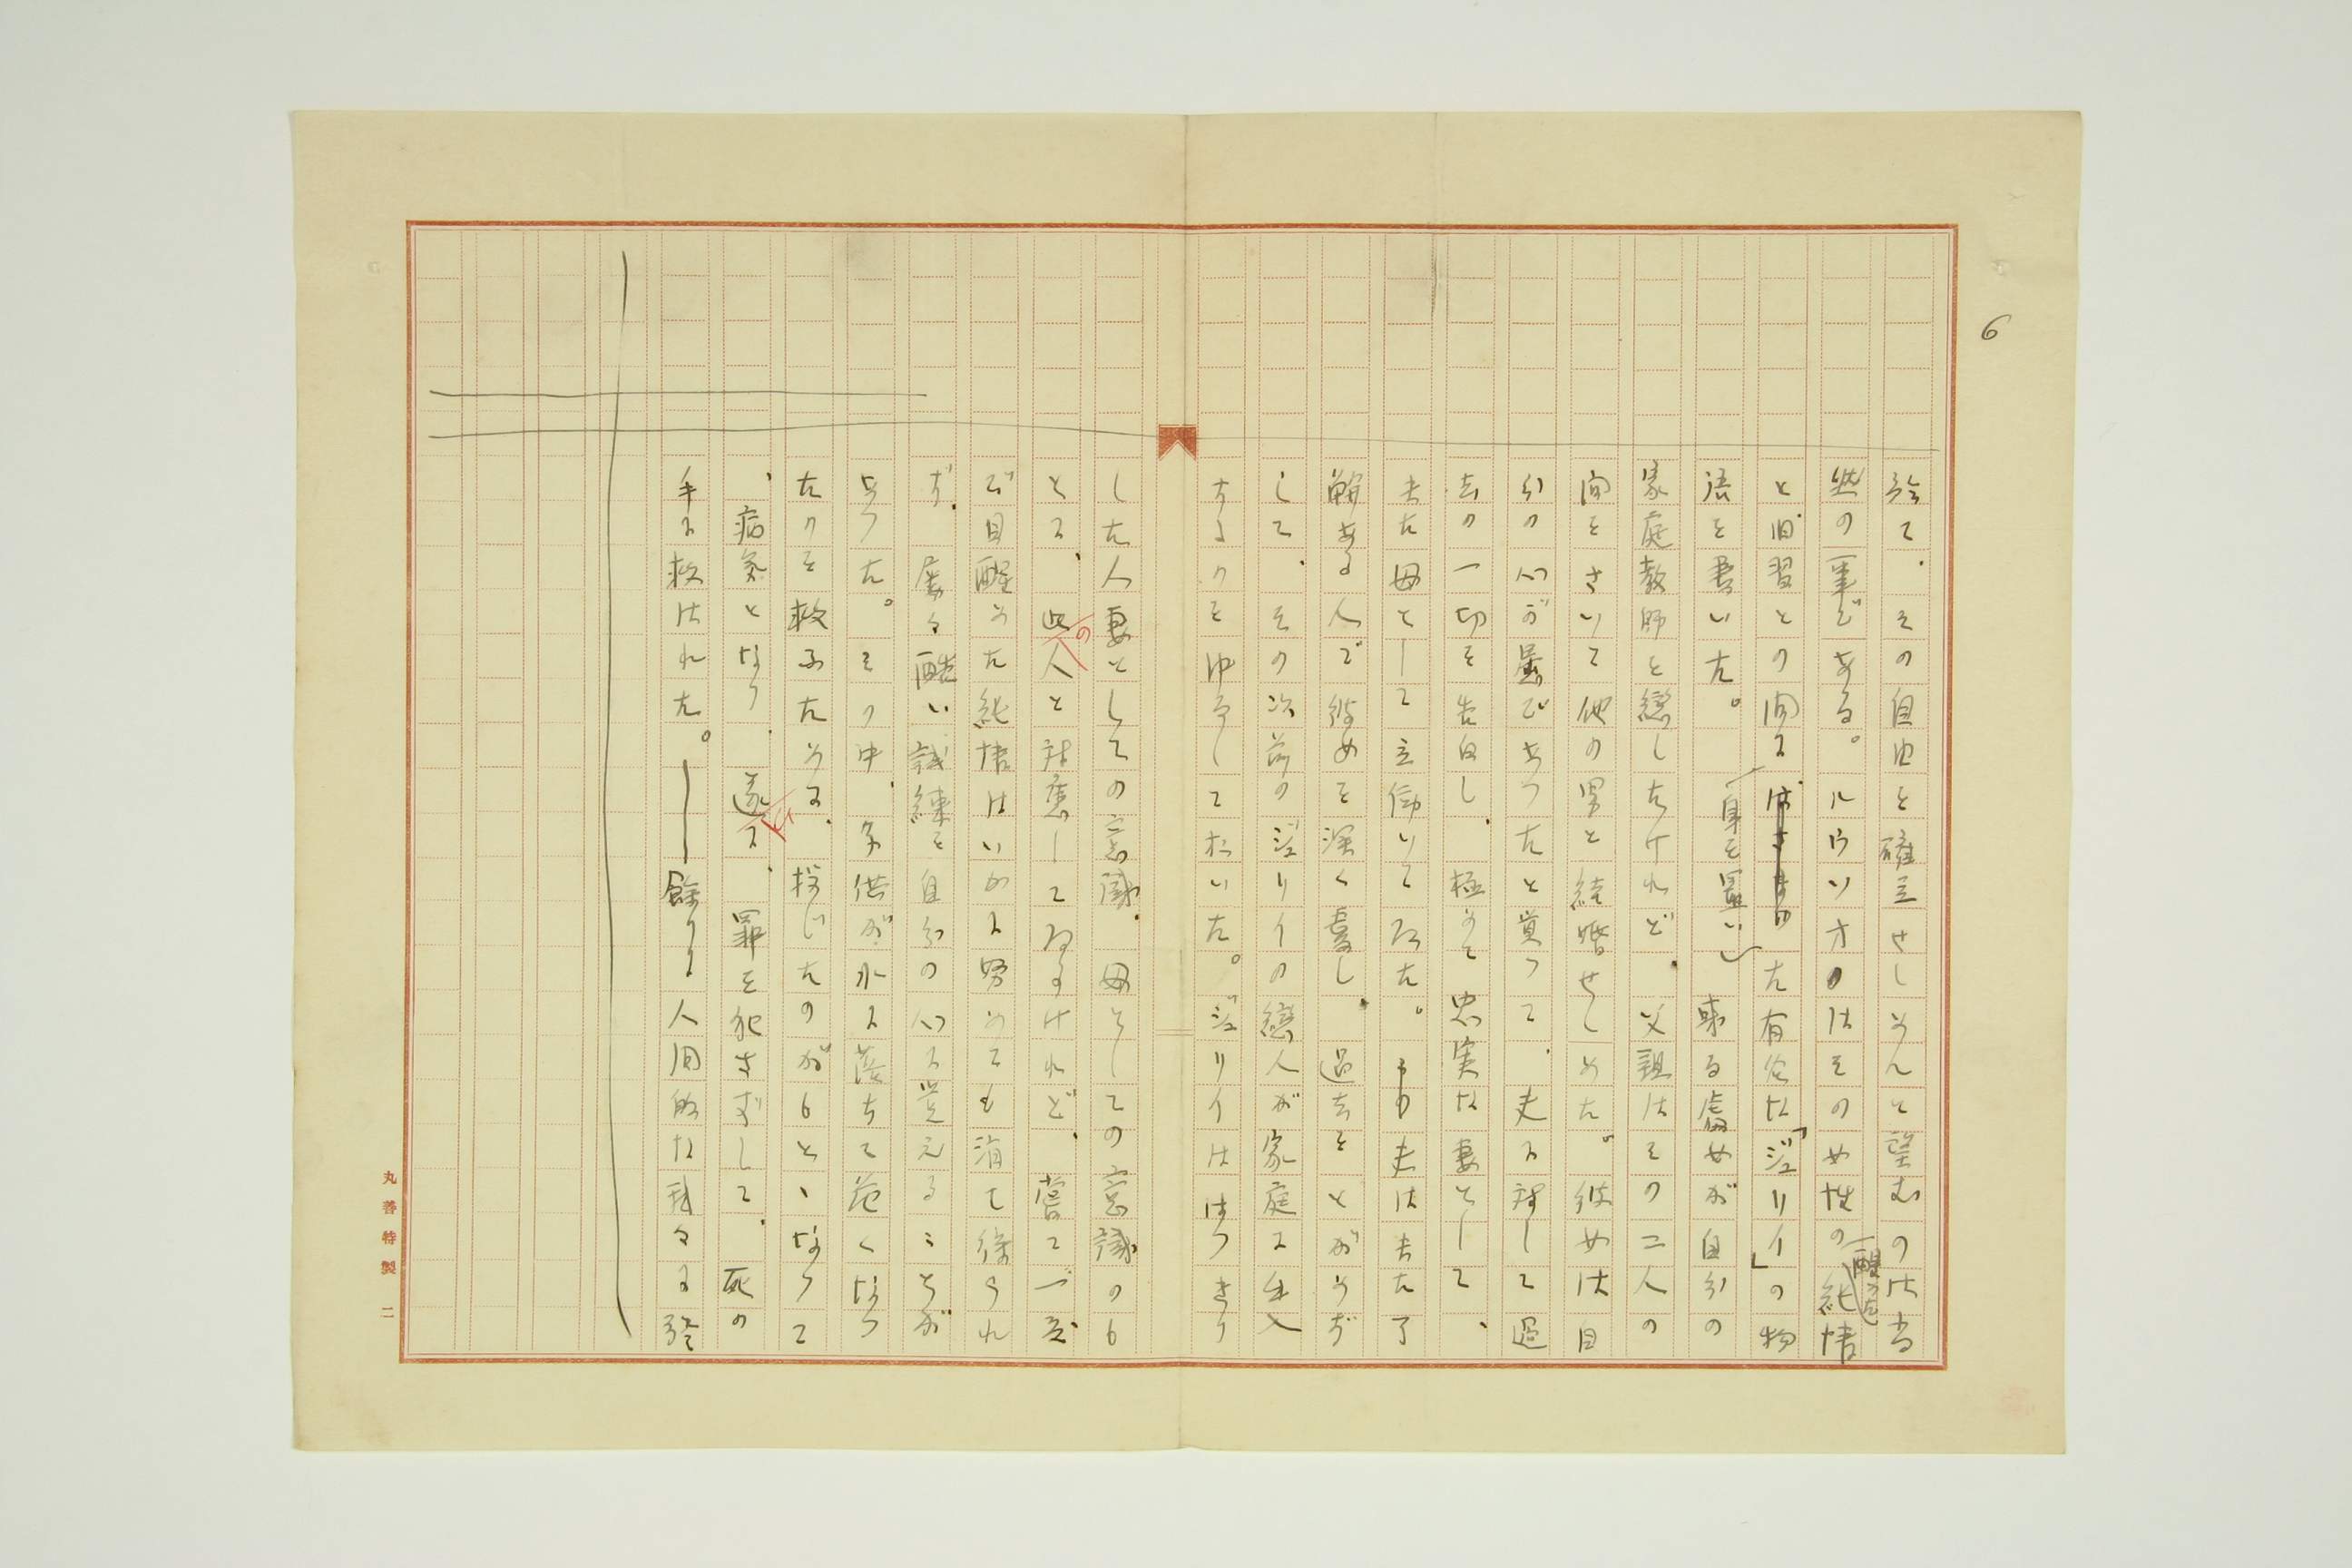 6
於て、その自由を確立せしめんと望むのは当
然の事である。ルウソオのはその女性の醒めた純情
と旧習との間に身を置いた有名な「ジュリイ」の物
語を書いた。或る處女が自分の
家庭教師と戀したけれど、父親はその二人の
間をさいて他の男と結婚せしめた。彼女は自
分の心が愚であつたと覚つて、夫に対して過
去の一切を告白し、極めて忠実な妻として、
また母として立働いてゐた。夫はまた了
解ある人で彼女を深く愛し、過去をとがめず
して、その次第のジュリイの戀人が家庭に出入
するのを許して
おいた。ジュリイははつきり
した人妻としての意識、母としての意識のも
とに、此の人と対應してゐるけれど、嘗て一度
び目醒めた純情はいかに努めても消て行かれ
ず、屡々酷い試練を自分の心に覚えることが
あつた。その中、子供が水に落ちて危くなつ
たのを救ふために、投じたのがもとゝなつて
、病気となり、遂に、罪を犯さずして、死の
手に救はれた。――餘りに人間的な我々に於
丸善特製 二